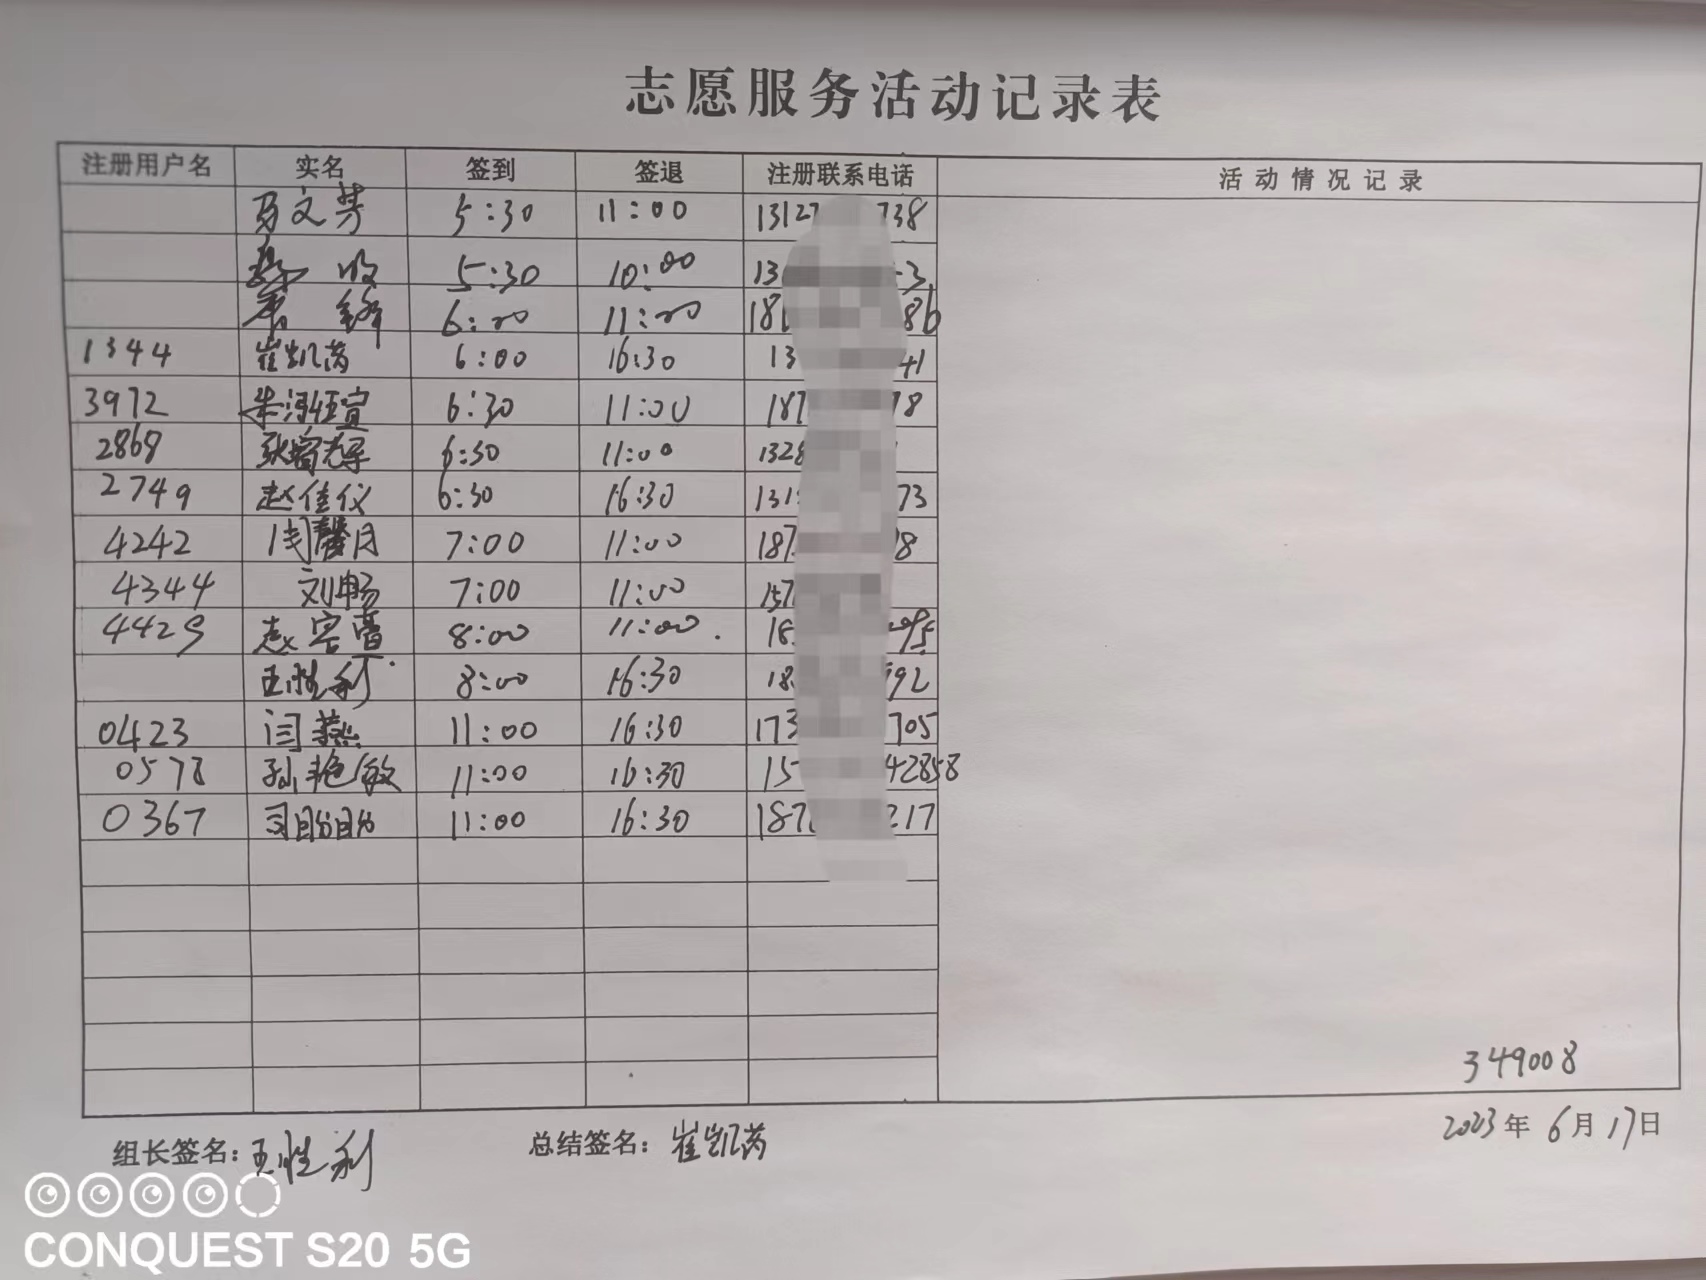 志愿服务活动记录表
注册用户名 实名 签到 签退 注册联系电话 活动情况记录
马文芳 5:30 11:00 1312 738
5:30 10:00 13 3
6:00 11:00 181 86
1344 崔凯芮 6:00 16:30 13 41
3972 6:30 11:00 187 78
2868 6:30 11:00 1328
2749 赵佳仪 6:30 16:30 131 73
4242 闫馨月 7:00 11:00 187 8
4344 刘畅 7:00 11:00 157
4429 赵 8:00 11:00 18
王胜利 8:00 16:30 18 92
0423 闫燕 11:00 16:30 173 705
0578 孙艳敏 11:00 16:30 15 42858
0367 司盼盼 11:00 16:30 187 217
349008
2023年6月17日
组长签名：王胜利 总结签名：崔凯芮
CONQUEST S20 5G